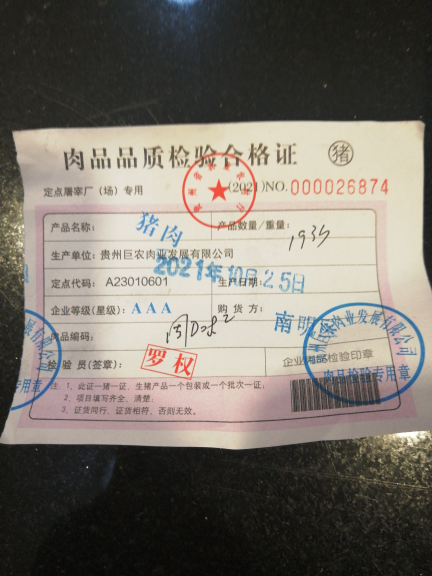 肉品品质检验合格证 猪
定点屠宰厂（场）专用 (2021)NO.000026874
产品名称： 猪肉 产品数量/重量：
生产单位：贵州巨农肉业发展有限公司
定点代码：A23010601 生产日期： 2021年10月25日
企业等级（星级）：AAA 购货方： 南明
肉品编码：
检验员（签章）： 罗权 企业内部检验印章
贵州巨农肉业发展有限公司
肉品检验专用章
注：1、此证一猪一证，生猪产品一个包装或一个批次一证；
2、项目填写齐全、清楚；
3、证货同行、证货相符，否则无效。